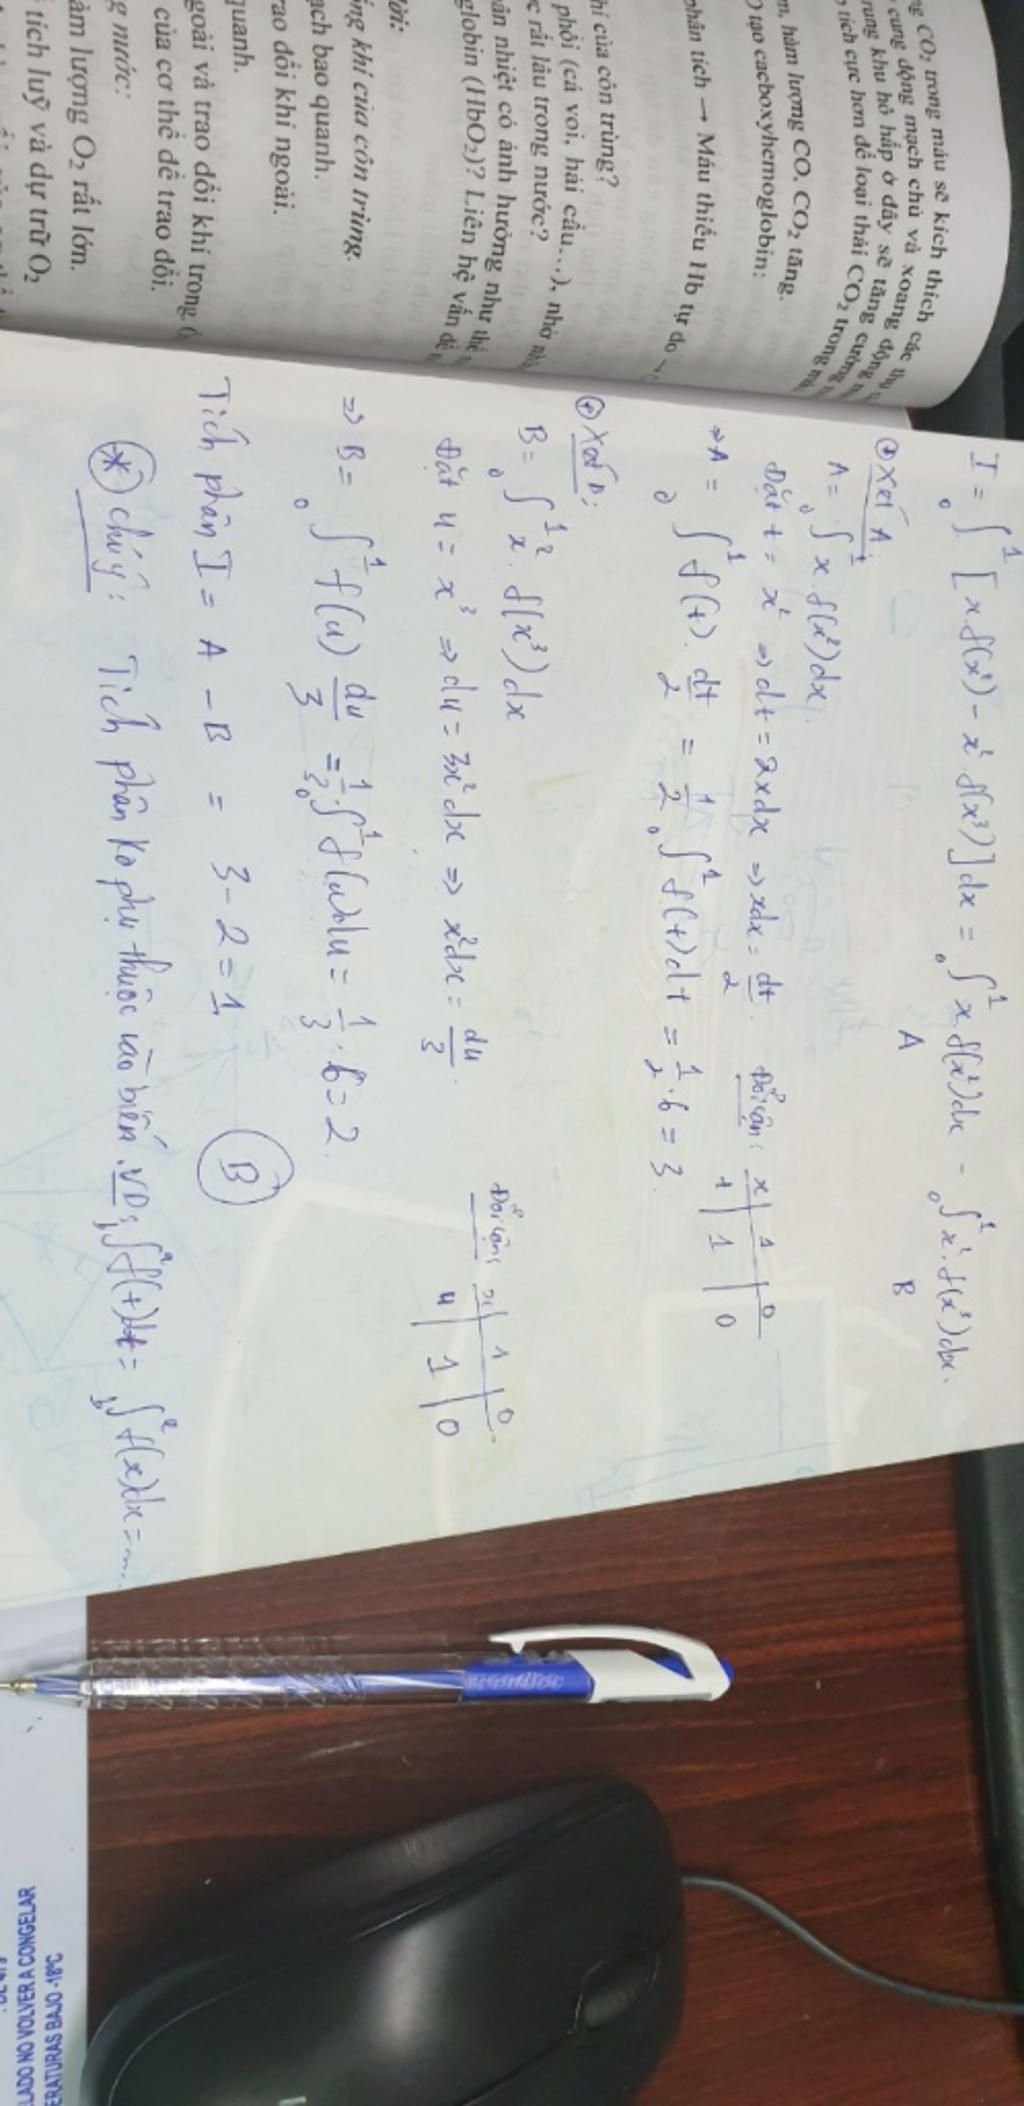 CO₂ trong máu sẽ kích thích các thụ
cung động mạch chủ và xoang động
trung khu hô hấp ở đây sẽ tăng cường
tích cực hơn để loại thải CO₂ trong
hàm lượng CO, CO₂ tăng.
tạo cacboxyhemoglobin:
phân tích → Máu thiếu Hb tự do →
khí của côn trùng?
phổi (cá voi, hải cẩu...), nhờ
rất lâu trong nước?
nhiệt có ảnh hưởng như thế
globin (HbO₂)? Liên hệ vấn đề
lời:
ống khí của côn trùng.
bao quanh.
trao đổi khí ngoài.
quanh.
ngoài và trao đổi khí trong
của cơ thể để trao đổi.
nước:
hàm lượng O₂ rất lớn.
tích luỹ và dự trữ O₂
I = ₀∫¹ [x.f(x²) - x².f(x³)]dx = ₀∫¹ x.f(x²)dx - ₀∫¹ x².f(x³)dx.
A B
⊕ Xét A:
A = ₀∫¹ x.f(x²)dx.
Đặt t = x² => dt = 2xdx => xdx = dt/2. Đổi cận: x | 1 | 0
t | 1 | 0
=> A = ₀∫¹ f(t). dt/2 = 1/2 ₀∫¹ f(t)dt = 1/2 . 6 = 3.
⊕ Xét B:
B = ₀∫¹ x². f(x³)dx
Đặt u = x³ => du = 3x²dx => x²dx = du/3. Đổi cận: x | 1 | 0
u | 1 | 0
=> B = ₀∫¹ f(u) du/3 = 1/3 . ₀∫¹ f(u)du = 1/3 . 6 = 2.
Tích phân I = A - B = 3 - 2 = 1 B
* chú ý: Tích phân ko phụ thuộc vào biến. VD: ᵇ∫ᵃ f(t)dt = ᵇ∫ᵃ f(x)dx = ...
LADO NO VOLVER A CONGELAR
ERATURAS BAJO -18ºC